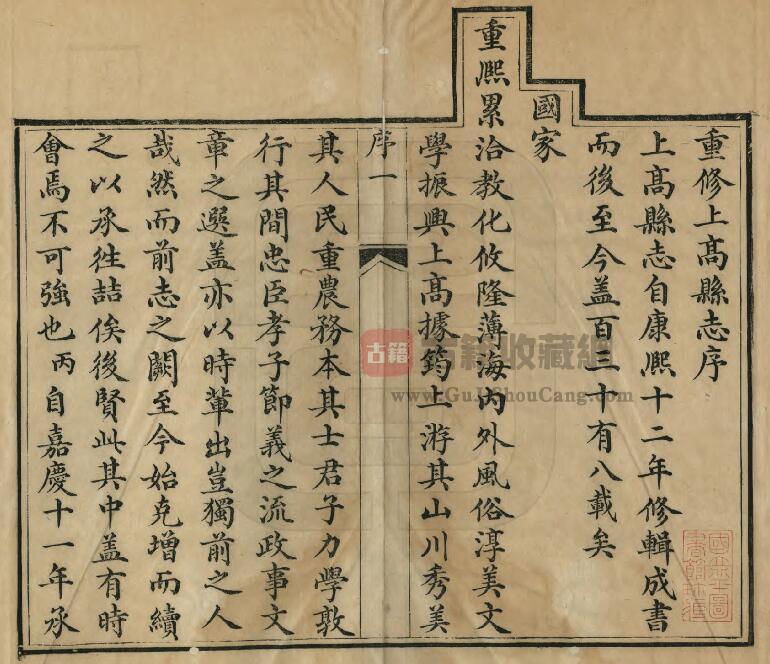 重修上髙縣志序
上髙縣志自康熈十二年修輯成書
而後至今盖百三十有八載矣
國家
重熈累洽教化攸隆薄海内外風俗淳美文
學振興上髙據筠上游其山川秀美
序一
其人民重農務本其士君子力學敦
行其間忠臣孝子節義之流政事文
章之選盖亦以時輩出豈獨前之人
哉然而前志之闕至今始克增而續
之以承徃喆俟後賢此其中盖有時
會焉不可強也丙自嘉慶十一年承
古籍
古籍收藏網
www.GuJiShouCang.com